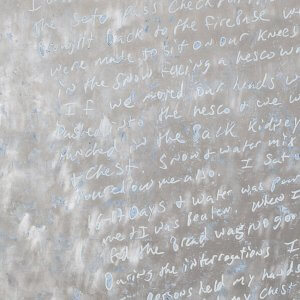 the Sato pass checkpoint
brought back to the firebase w
were made to sit on our knees
in the snow facing a hesco w
If we moved our heads w
pushed into the hesco & we w
punched in the Back Kidney
& Chest. Snow & water mix
poured over me also. I Sat
6-17 Days & water was pour
me & I was beaten. When I
the Bread was no goo
During the interrogations I
persons held my hands
my chest